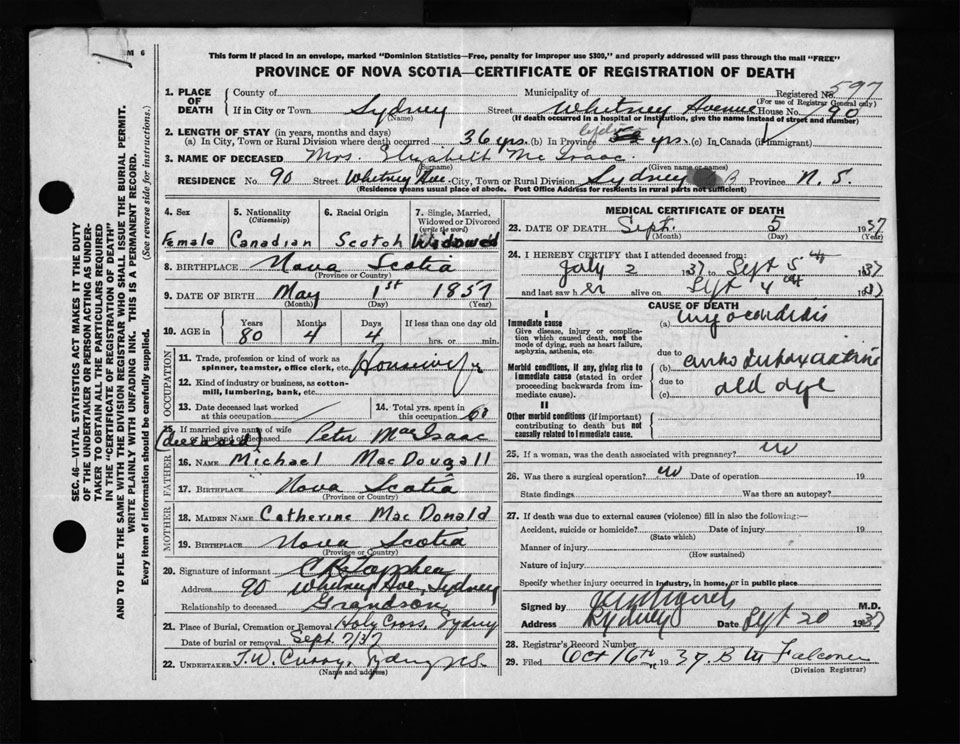 M 6
This form if placed in an envelope, marked "Dominion Statistics—Free, penalty for improper use $300," and properly addressed will pass through the mail "FREE"
PROVINCE OF NOVA SCOTIA—CERTIFICATE OF REGISTRATION OF DEATH
SEC. 46—VITAL STATISTICS ACT MAKES IT THE DUTY
OF THE UNDERTAKER OR PERSON ACTING AS UNDER-
TAKER TO OBTAIN ALL THE PARTICULARS REQUIRED
IN THE "CERTIFICATE OF REGISTRATION OF DEATH"
AND TO FILE THE SAME WITH THE DIVISION REGISTRAR WHO SHALL ISSUE THE BURIAL PERMIT.
WRITE PLAINLY WITH UNFADING INK. THIS IS A PERMANENT RECORD.
Every item of information should be carefully supplied. (See reverse side for instructions.)
1. PLACE OF DEATH County of Municipality of Registered No. 597
(For use of Registrar General only)
If in City or Town Sydney Street Whitney Avenue House No. 90
(Name) (If death occurred in a hospital or institution, give the name instead of street and number)
2. LENGTH OF STAY (in years, months and days)
(a) In City, Town or Rural Division where death occurred 36 yrs. (b) In Province yrs. (c) In Canada (if immigrant)
3. NAME OF DECEASED Mrs. Elizabeth Mc Isaac.
(Surname) (Given name or names)
RESIDENCE No. 90 Street Whitney Ave. City, Town or Rural Division Sydney C B Province N. S.
(Residence means usual place of abode. Post Office Address for residents in rural parts not sufficient)
4. Sex Female
5. Nationality (Citizenship) Canadian
6. Racial Origin Scotch
7. Single, Married, Widowed or Divorced (write the word) Widowed
8. BIRTHPLACE Nova Scotia
(Province or Country)
9. DATE OF BIRTH May 1st 1857
(Month) (Day) (Year)
10. AGE in Years Months Days If less than one day
80 4 4 hrs. or min.
OCCUPATION
11. Trade, profession or kind of work as spinner, teamster, office clerk, etc. Housewife
12. Kind of industry or business, as cotton-mill, lumbering, bank, etc.
13. Date deceased last worked at this occupation
14. Total yrs. spent in this occupation 60
15. If married give name of wife or husband of deceased (deceased) Peter MacIsaac
FATHER
16. NAME Michael MacDougall
17. BIRTHPLACE Nova Scotia
(Province or Country)
MOTHER
18. MAIDEN NAME Catherine MacDonald
19. BIRTHPLACE Nova Scotia
(Province or Country)
20. Signature of informant
Address 90 Whitney Ave, Sydney
Relationship to deceased Grandson
21. Place of Burial, Cremation or Removal Holy Cross, Sydney
Date of burial or removal Sept. 7/37
22. UNDERTAKER T. W. Curry, Sydney N.S.
(Name and address)
MEDICAL CERTIFICATE OF DEATH
23. DATE OF DEATH Sept. 5 1937
(Month) (Day) (Year)
24. I HEREBY CERTIFY that I attended deceased from:
July 2 1937 to Sept 5th 1937
and last saw her alive on Sept 4th 1937
CAUSE OF DEATH
I
Immediate cause
Give disease, injury or complication which caused death, not the mode of dying, such as heart failure, asphyxia, asthenia, etc.
(a) Myocarditis
due to
Morbid conditions, if any, giving rise to immediate cause (stated in order proceeding backwards from immediate cause).
(b)
due to
(c) old age
II
Other morbid conditions (if important) contributing to death but not causally related to immediate cause.
25. If a woman, was the death associated with pregnancy? no
26. Was there a surgical operation? no Date of operation 19
State findings Was there an autopsy?
27. If death was due to external causes (violence) fill in also the following:—
Accident, suicide or homicide? Date of injury 19
(State which)
Manner of injury
(How sustained)
Nature of injury
Specify whether injury occurred in industry, in home, or in public place
Signed by M.D.
Address Sydney Date Sept 20 1937
28. Registrar's Record Number
29. Filed Oct 16th 1937. B M Falconer
(Division Registrar)